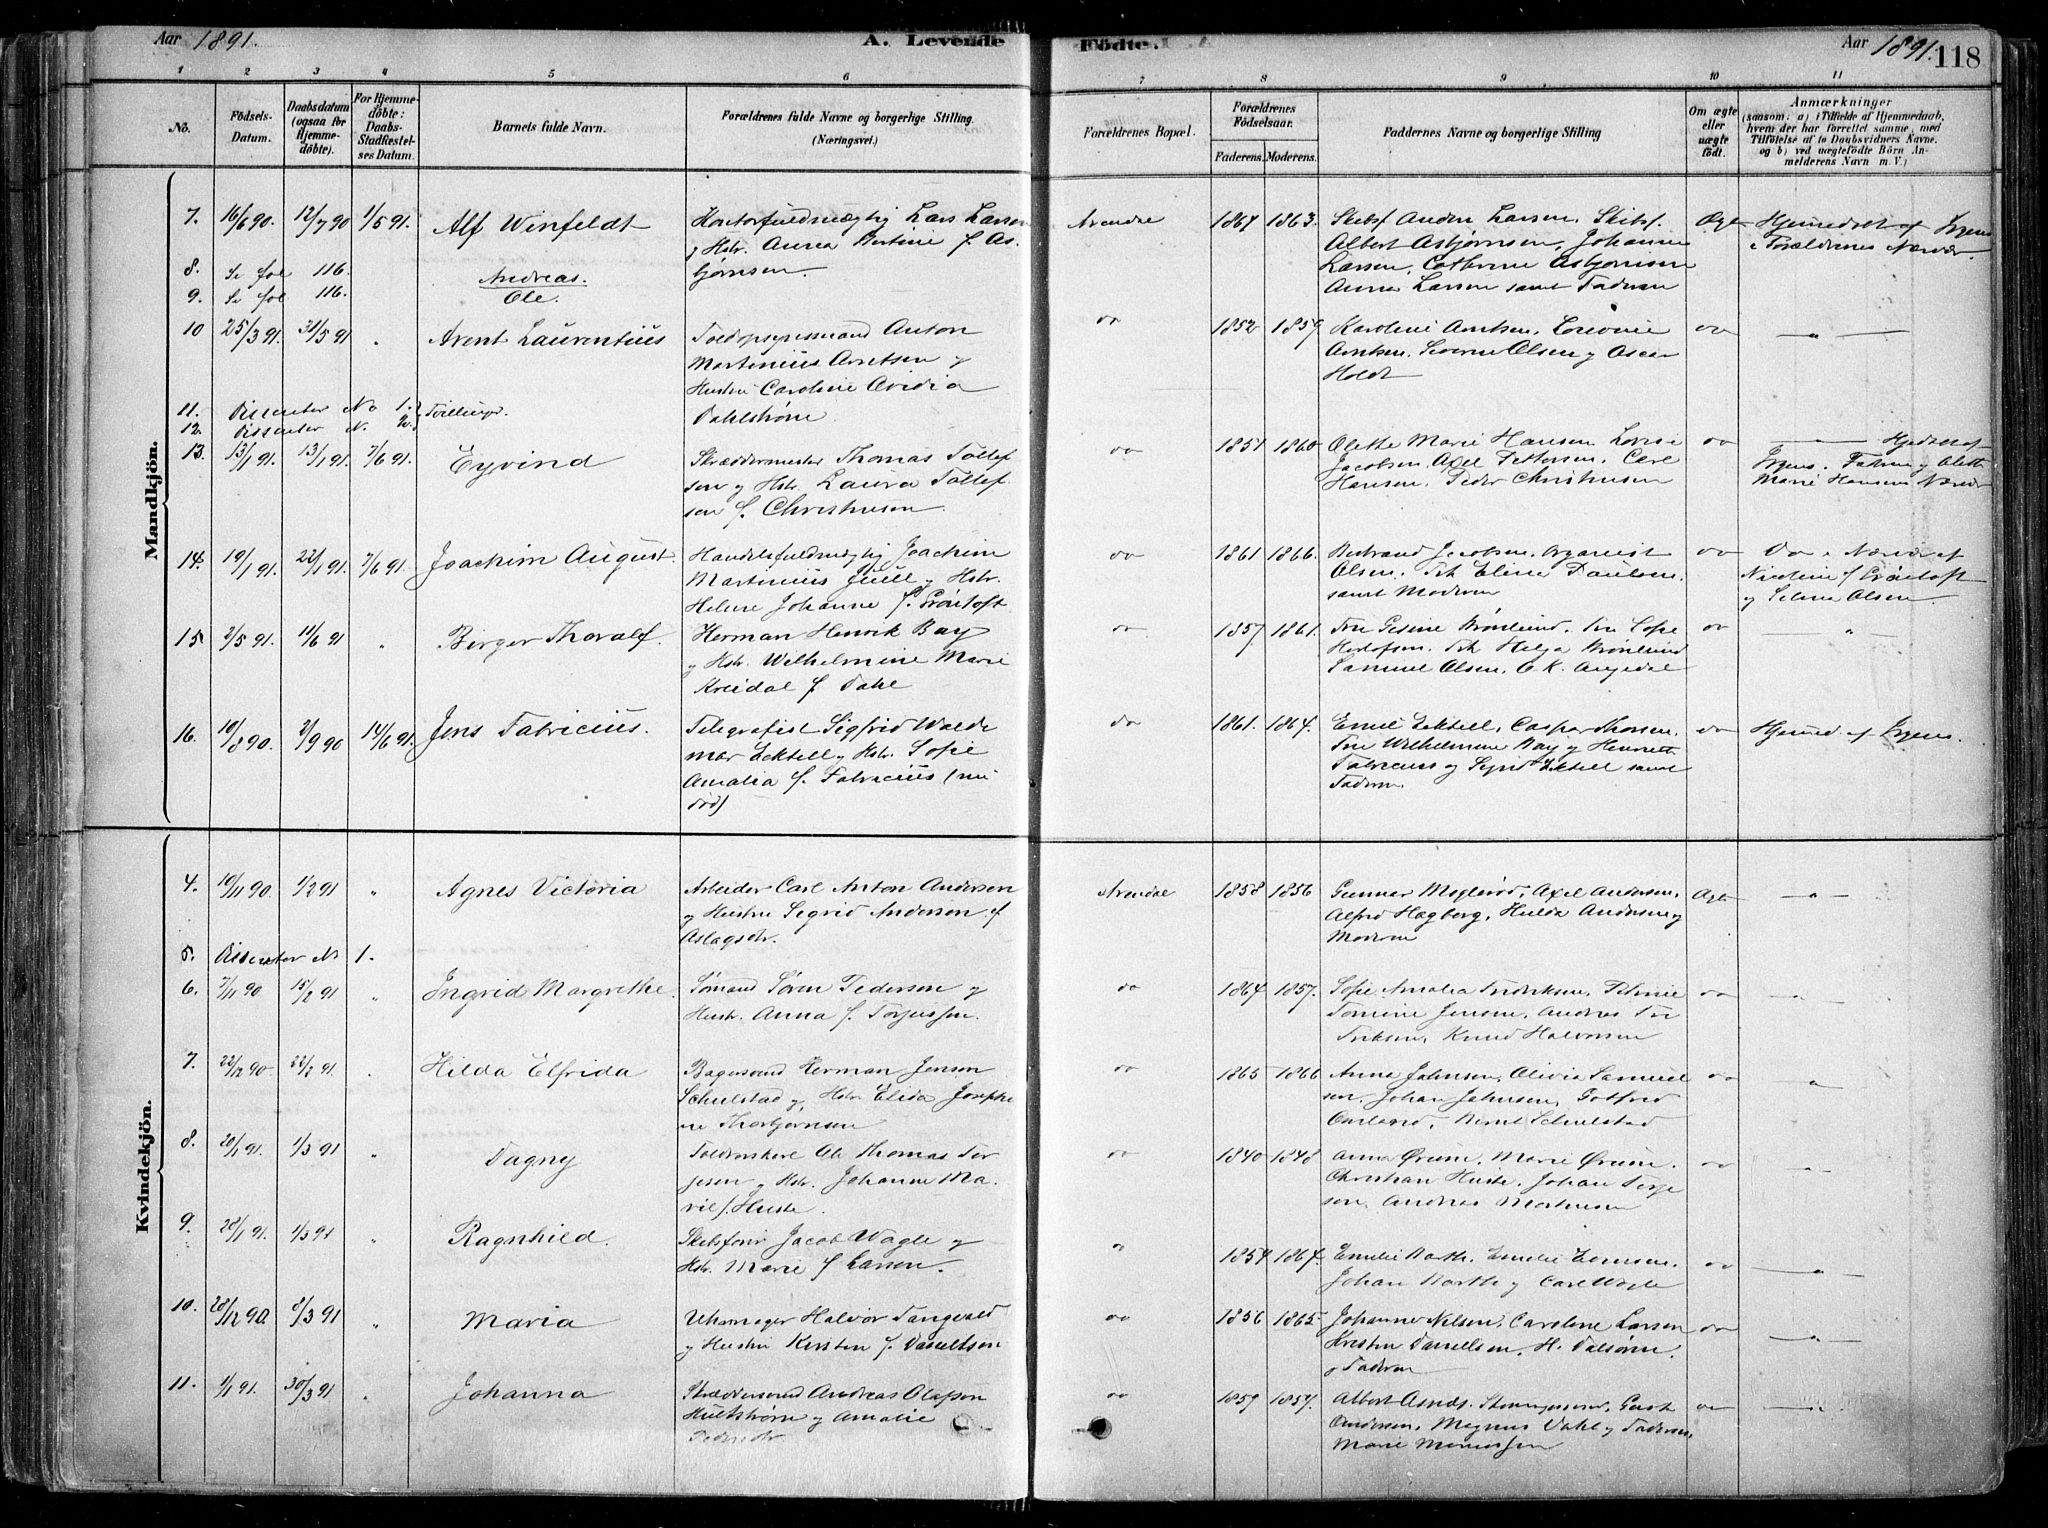 Aar 1891. A. Levende
Födte. Aar 1891. 118
1 2 3 4 5 6
7 8 9 10 11
No.
Födsels-
Datum.
Daabsdatum
(ogsaa for
Hjemme-
döbte).
For Hjemme-
döbte:
Daabs-
Stadfæstel-
ses Datum.
Barnets fulde Navn.
Forældrenes fulde Navne og borgerlige Stilling.
(Næringsvei.)
Forældrenes Bopæl.
Forældrenes
Födselsaar.
Faderens. Moderens.
Faddernes Navne og borgerlige Stilling
Om ægte
eller
uægte
födt.
Anmærkninger
(saasom: a) i Tilfælde af Hjemmedaab,
hvem der har forrettet samme, med
Tilföielse af to Daabsvidners Navne,
og b) ved uægtefödte Börn An-
melderens Navn m. V.)
Mandkjön.
7. 16/6 90. 12/7 90 1/5 91. Alf Winfeldt
Kontorfuldmægtig Lars Larsen
og Hstr. Anna Bertine f. As-
bjørnsen.
Arendal 1867 1863.
Larsen, Skibsf.
Albert Asbjørnsen, Johanne
Larsen, Cathrine Asbjørnsen
Anna Larsen samt Faderen
Ægte
Forældrenes Nærvær.
8. Se fol 116. Andreas.
9. Se fol 116. Ole.
10 25/3 91. 31/5 91 " Arent Laurentius
Anton
Martinius Arntsen og
Hustru Caroline Ovidia
Dahlstrøm
do 1852 1859
Karoline Arntsen,
Arntsen, Severine Olsen og Oscar
Holdt
do "
11. Dissenter No 1. Tvillinger.
12. Dissenter N. 2.
13. 13/1 91. 13/1 91. 7/6 91. Eyvind
Skræddermester Thomas Tollef
sen og Hstr. Laura Tollef
sen f. Christensen.
do 1851 1860
Olette Marie Hansen, Lovise
Jacobsen, Axel Pettersen, Carl
Hansen, Peder Christensen
do
Marie Hansens Nærvær
14. 19/1 91. 22/1 91. 7/6 91. Joachim August.
Handelsfuldmægtig Joachim
Martinius Juul og Hstr.
Helene Johanne f.
do 1861 1866.
Bertrand Jacobsen, Organist
Olsen, Frk Elina Paulsen,
samt Moderen
do
Do i Nærvær af
og Selma Olsen.
15 2/5 91. 11/6 91 " Birger Thoralf.
Herman Henrik Bay
og Hstr. Wilhelmine Marie
f. Dahl
do 1857. 1861.
Fru Gesine Brønlund, Fru Sofie
Herlofsen, Frk Helga Brønlund
Samuel Olsen, O. K.
do "
16. 10/8 90. 2/9 90 14/6 91. Jens Fabricius.
Telegrafist Sigfrid Walde
mar Ecktell og Hstr. Sofie
Amalia f. Fabricius (nu
død)
do 1861. 1864.
Emil Ecktell, Caspar Thorsen,
Fru Wilhelmine Bay og Henriette
Fabricius og Sigrid Ecktell samt
Faderen.
do
Kvindekjön.
4. 10/11 90. 1/2 91 " Agnes Victoria
Arbeider Carl Anton Andersen
og Hustru Segrid Andersen f.
Aslagsdtr.
Arendal 1858 1856
Gunnar Axel Andersen,
Alfred Hagberg, Hulda Andersen og
Moderen
Ægte "
5. Dissenter No 1.
6. 7/11 90 15/2 91 " Ingrid Margrethe.
Sømand Søren Pedersen og
Hustr. Anna f. Torjussen.
do 1864 1857.
Sofie Amalia Fredriksen,
Tomine Jensen, Andreas
Knud Halvorsen
do "
7. 22/12 90. 22/2 91. " Hilda Elfrida
Bagersvend Herman Jensen
Schulstad og Hstr. Elida Josephi
ne Thorbjørnsen
do 1865 1866
Anna Johnsen, Olivia Samuel
sen, Johan Johnsen, Gotfred
Bernt Schulstad
do "
8. 20/1 91. 1/3 91 " Dagny
Thomas Ter
jesen og Hstr. Johanne Ma
f. Huste.
do 1840 1848
Anna Ørum, Marie Ørum.
Christian Huste, Johan Terje
sen, Andreas
do "
9. 28/1 91. 1/3 91 " Ragnhild.
Skibsfører Jacob Wagle og
Hstr. Marie f. Larsen.
do 1854 1867.
Emilie Barth, Emilie
Johan Barth og Carl Wagle
do "
10. 28/12 90. 8/3 91 " Maria
Uhrmager Halvor Tangvald
og Hustru Kirsten f. Danielsen
do 1856 1865
Johanne Nilsen, Caroline Larsen
Kristen Danielsen, H.
og Faderen
do "
11. 1/1 91. 30/3 91 " Johanna
Skræddersvend Andreas Olafsen
Hultstrøm og Amalie
Pedersdtr.
do 1859 1857.
Albert
Andersen, Magnus Dahl og Faderen,
Marie
do "